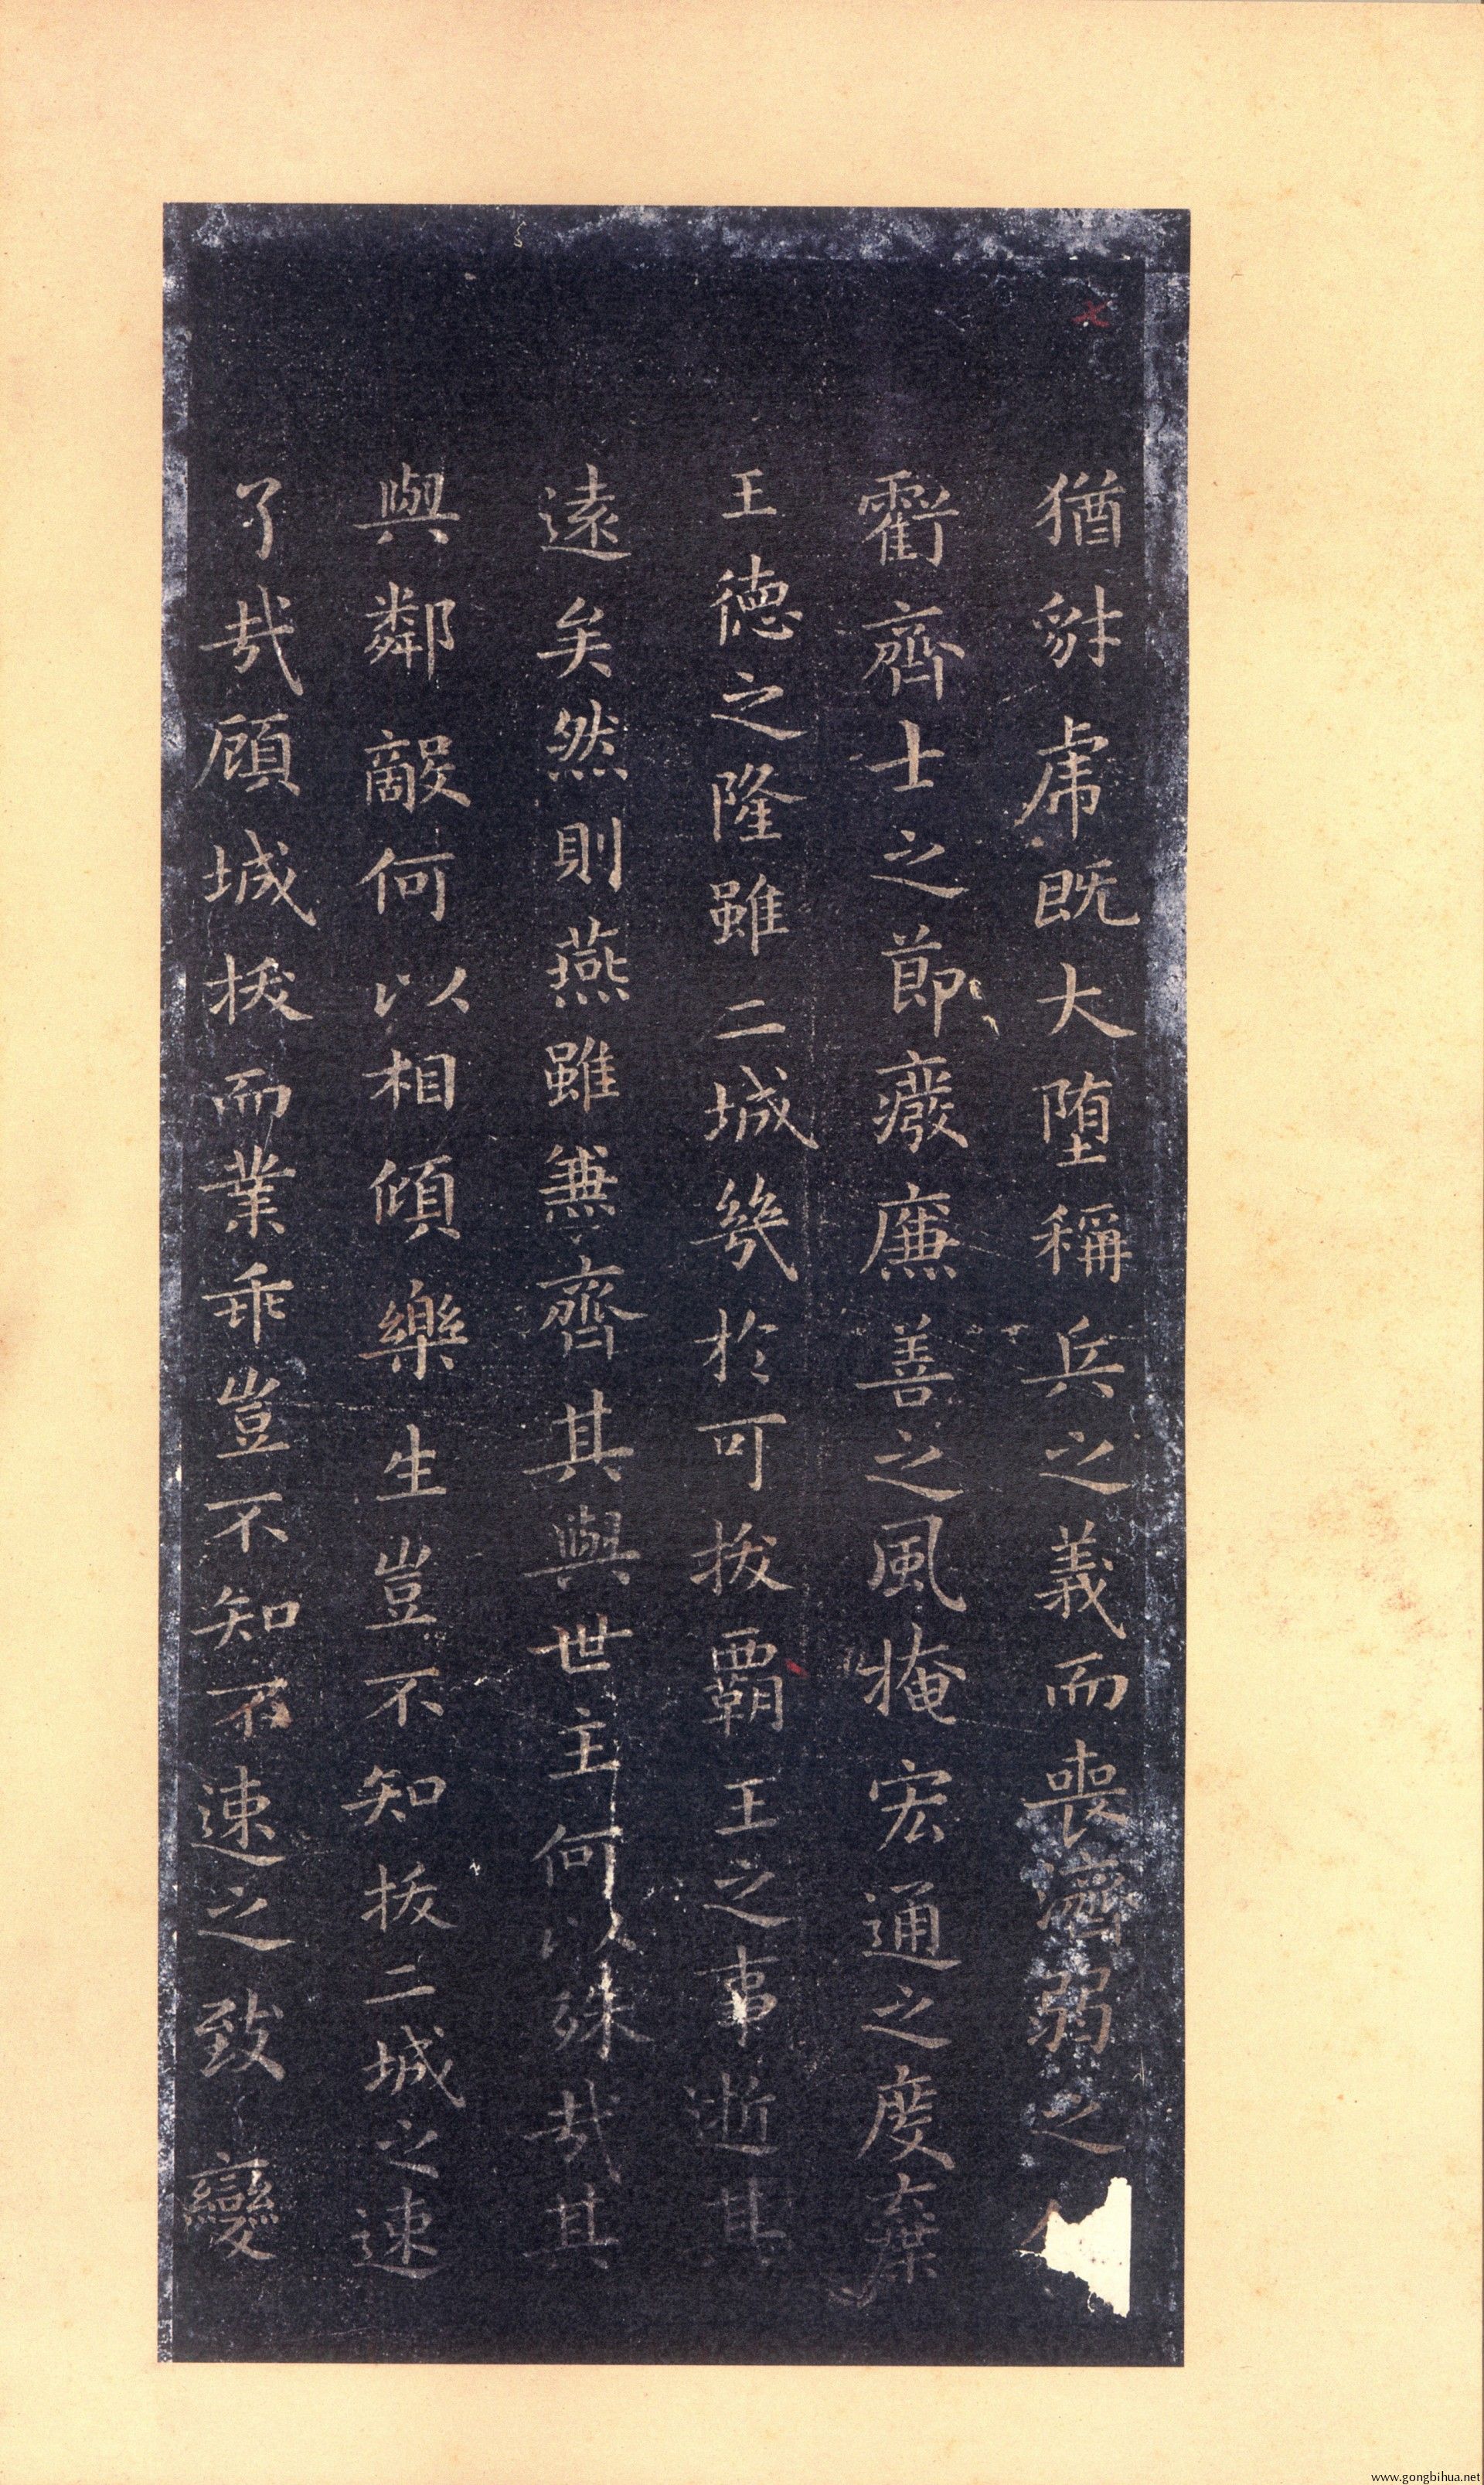 猶豺虎既大墮稱兵之義而喪濟弱之
虧齊士之節癈廉善之風掩宏通之度棄
王德之隆雖二城幾於可拔霸王之事逝其
遠矣然則燕雖兼齊其與世主何以殊哉其
與鄰敵何以相傾樂生豈不知拔二城之速
了哉顧城拔而業乖豈不知不速之致變
www.gongbihua.net